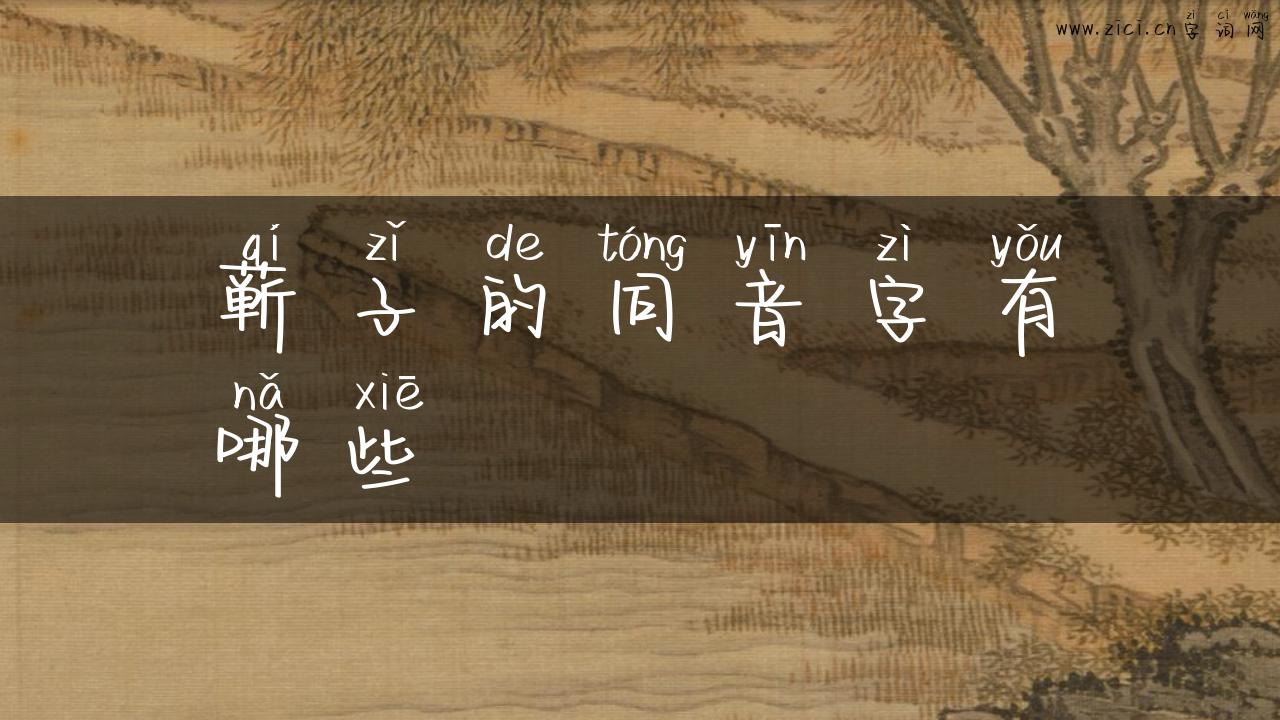 zì cí wǎng
www.zici.cn 字 词 网
qí zǐ de tóng yīn zì yǒu
蕲 子 的 同 音 字 有
nǎ xiē
哪 些